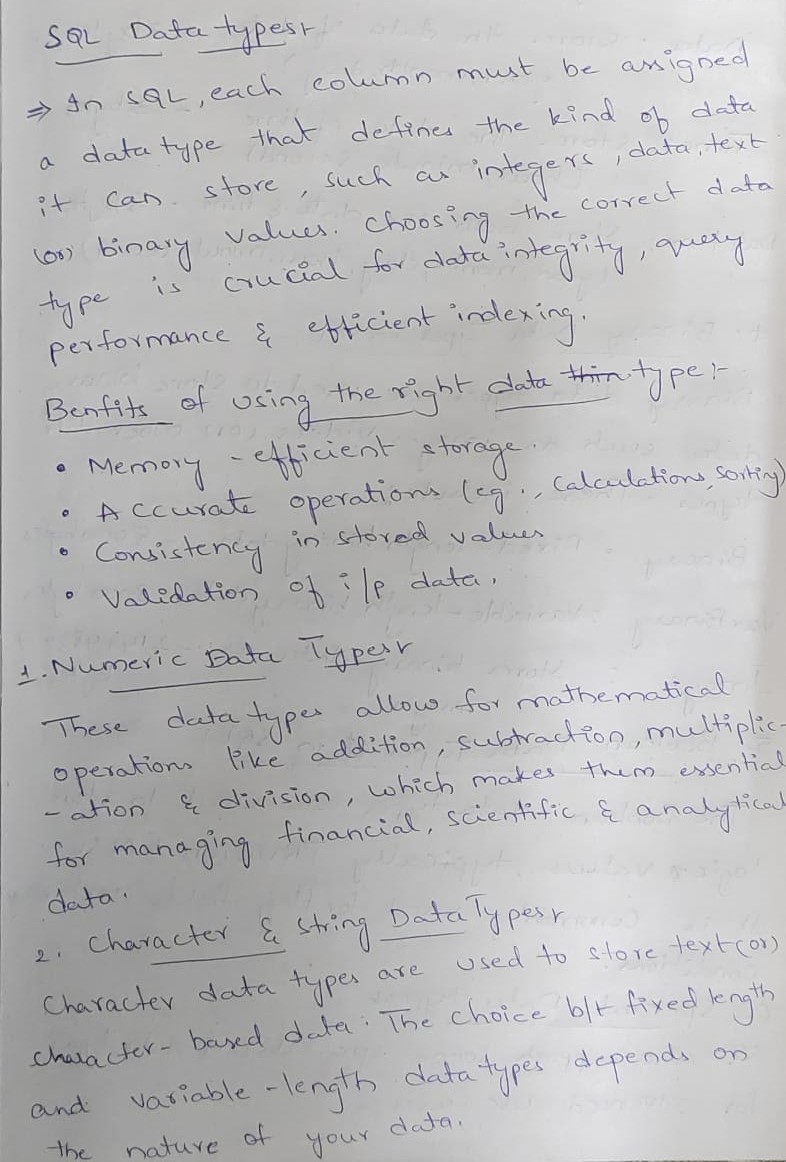 SQL Data types:-
⇒ In SQL, each column must be assigned
a data type that defines the kind of data
it can store, such as integers, data, text
(or) binary values. Choosing the correct data
type is crucial for data integrity, query
performance & efficient indexing.
Benfits of using the right data thin type:-
• Memory - efficient storage.
• Accurate operations (eg., Calculations, Sorting)
• Consistency in stored values
• Validation of i/p data.
1. Numeric Data Types:-
These data types allow for mathematical
operations like addition, subtraction, multiplic-
-ation & division, which makes them essential
for managing financial, scientific & analytical
data.
2. Character & string Data Types:-
Character data types are used to store text (or)
character- based data. The choice b/t fixed length
and variable -length data types depends on
the nature of your data.